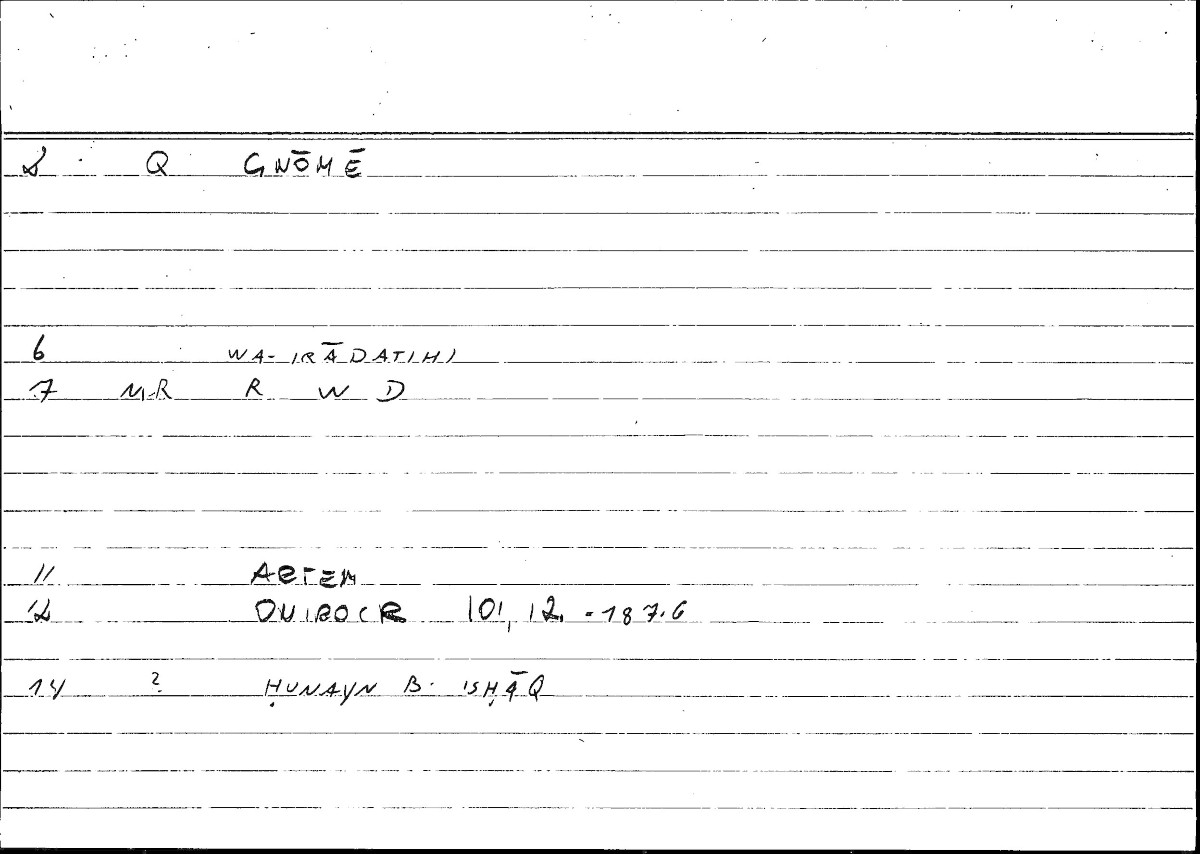 2 Q GNŌMĒ
6 WA-IRĀDATIHI
7 M-R R W D
11 ARTEM
12 ONIROCR 101,12.-187.6
14 ? ḤUNAYN B. ISḤĀQ